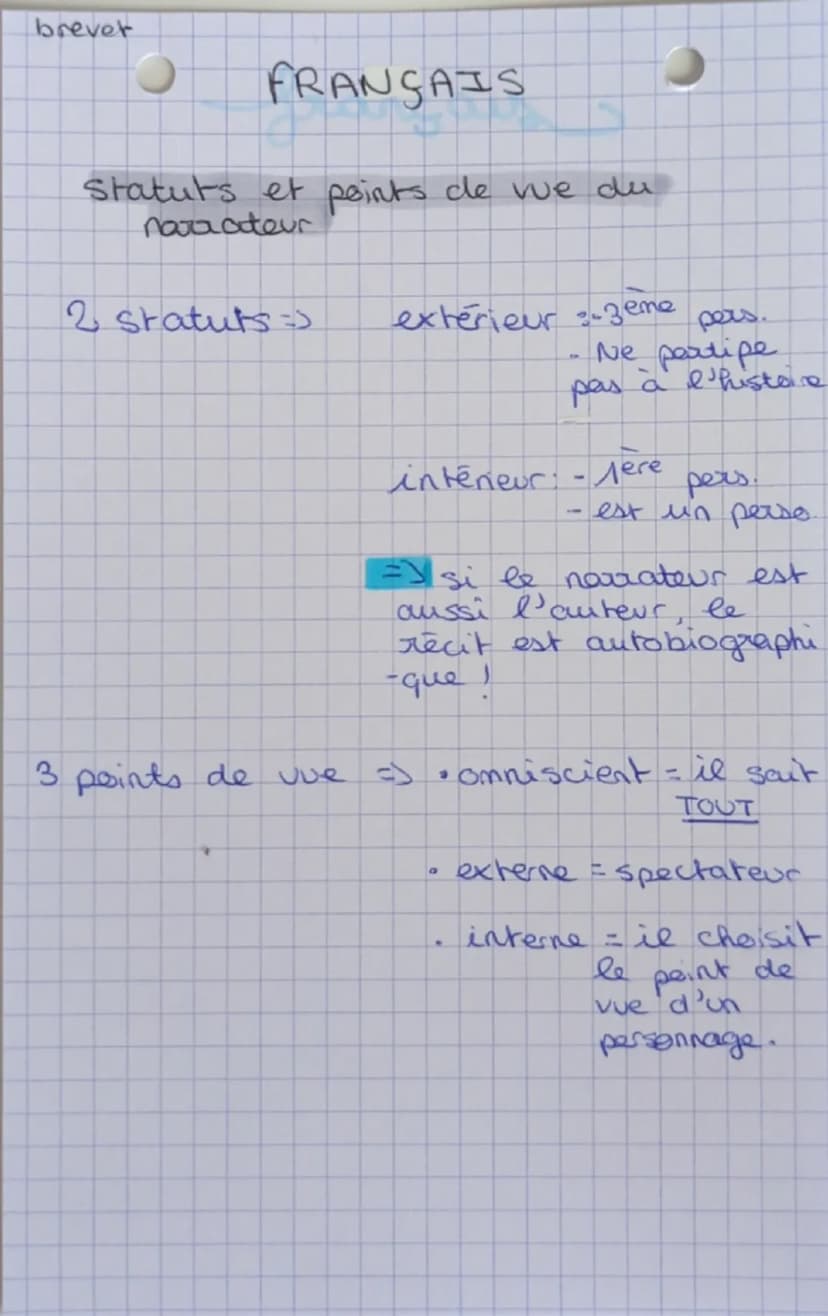 brevet
FRANÇAIS
statuts et points de vue du
narrateur
2 statuts => extérieur :- 3ème pers.
- Ne partipe
pas à l'histoire
intérieur : - 1ère pers.
- est un perso
=> si le narrateur est
aussi l'auteur, le
récit est autobiographi
-que !
3 points de vue => • omniscient = il sait
TOUT
• externe = spectateur
• interne = il choisit
le point de
vue d'un
personnage.